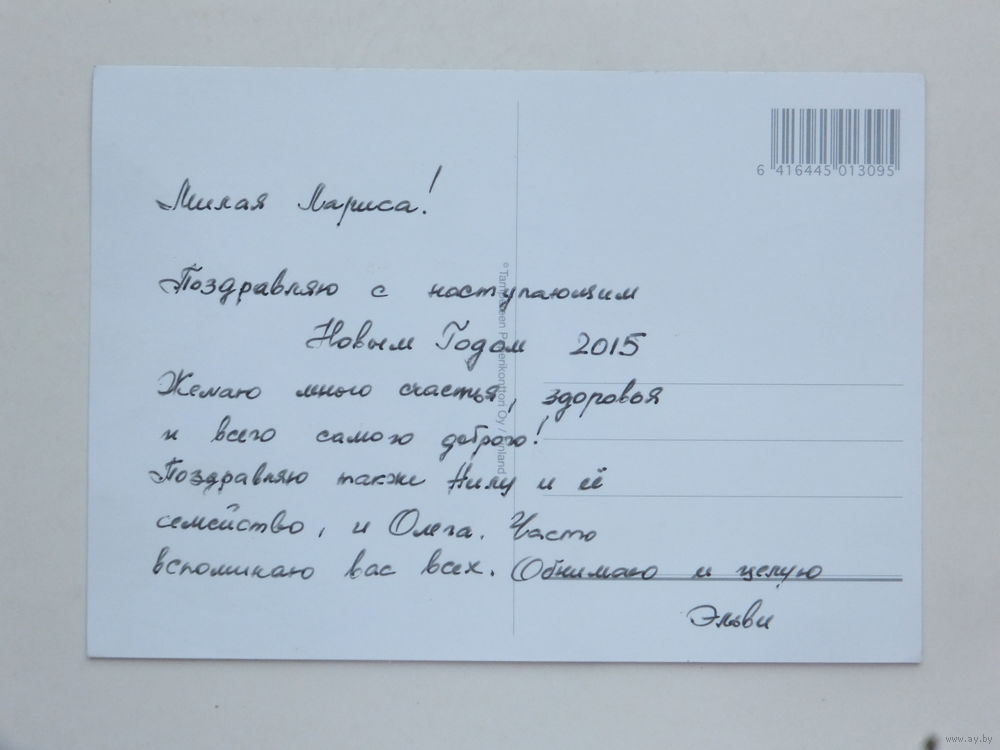 6 416445 013095
Милая Лариса!
Поздравляю с наступающим
Новым Годом 2015
Желаю много счастья, здоровья
и всего самого доброго!
Поздравляю также Нилу и её
семейство, и Олега. Часто
вспоминаю вас всех. Обнимаю и целую
Эльви
© Tampereen Paperikonttori Oy / Finland
www.ay.by